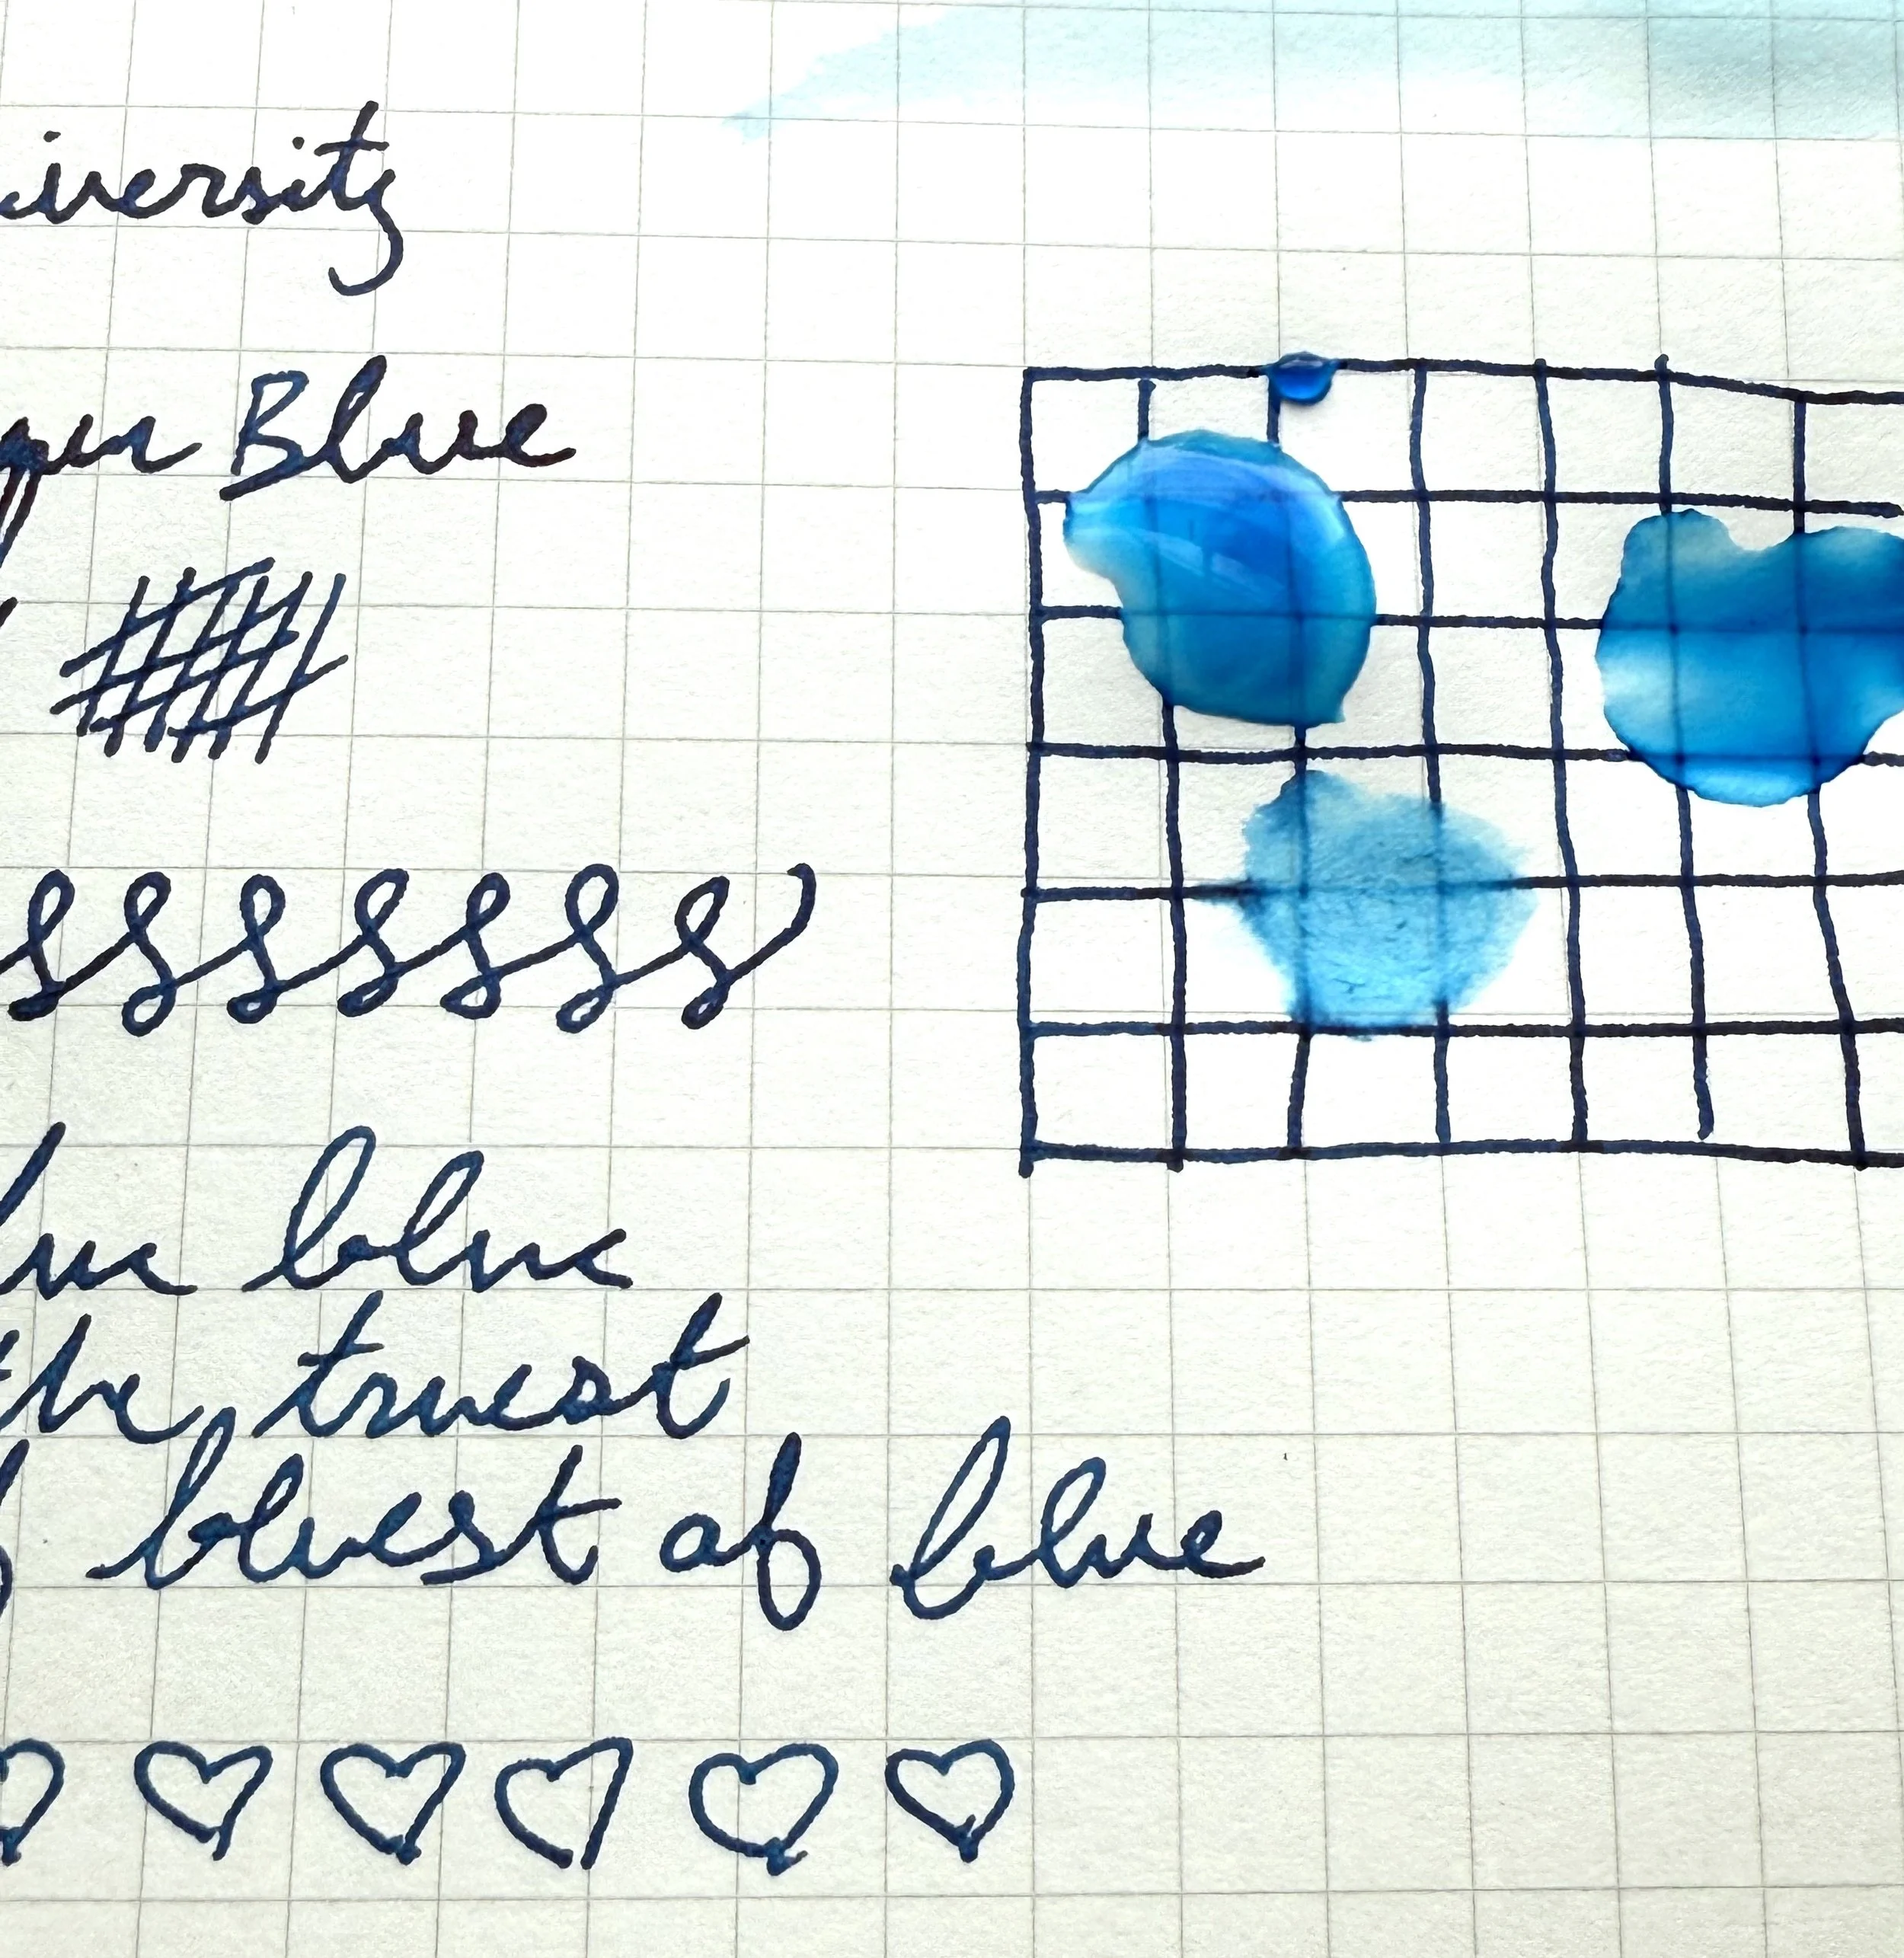 iversity
Blue
ssssssss
lue blue
the truest
bluest of blue